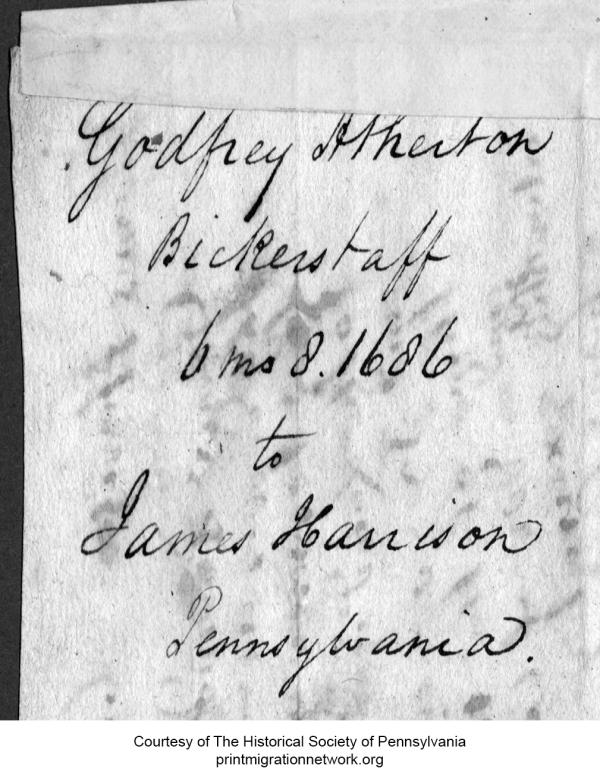 Godfrey Atherton
Bickerstaff
6 mo 8. 1686
to
James Harrison
Pennsylvania.
Courtesy of The Historical Society of Pennsylvania
printmigrationnetwork.org